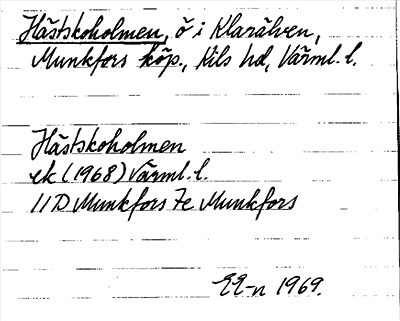 Hästskoholmen, ö i Klarälven,
Munkfors köp., Kils hd, Värml. l.
Hästskoholmen
ek (1968) Värml. l.
11D Munkfors 7e Munkfors
EE-n 1969.